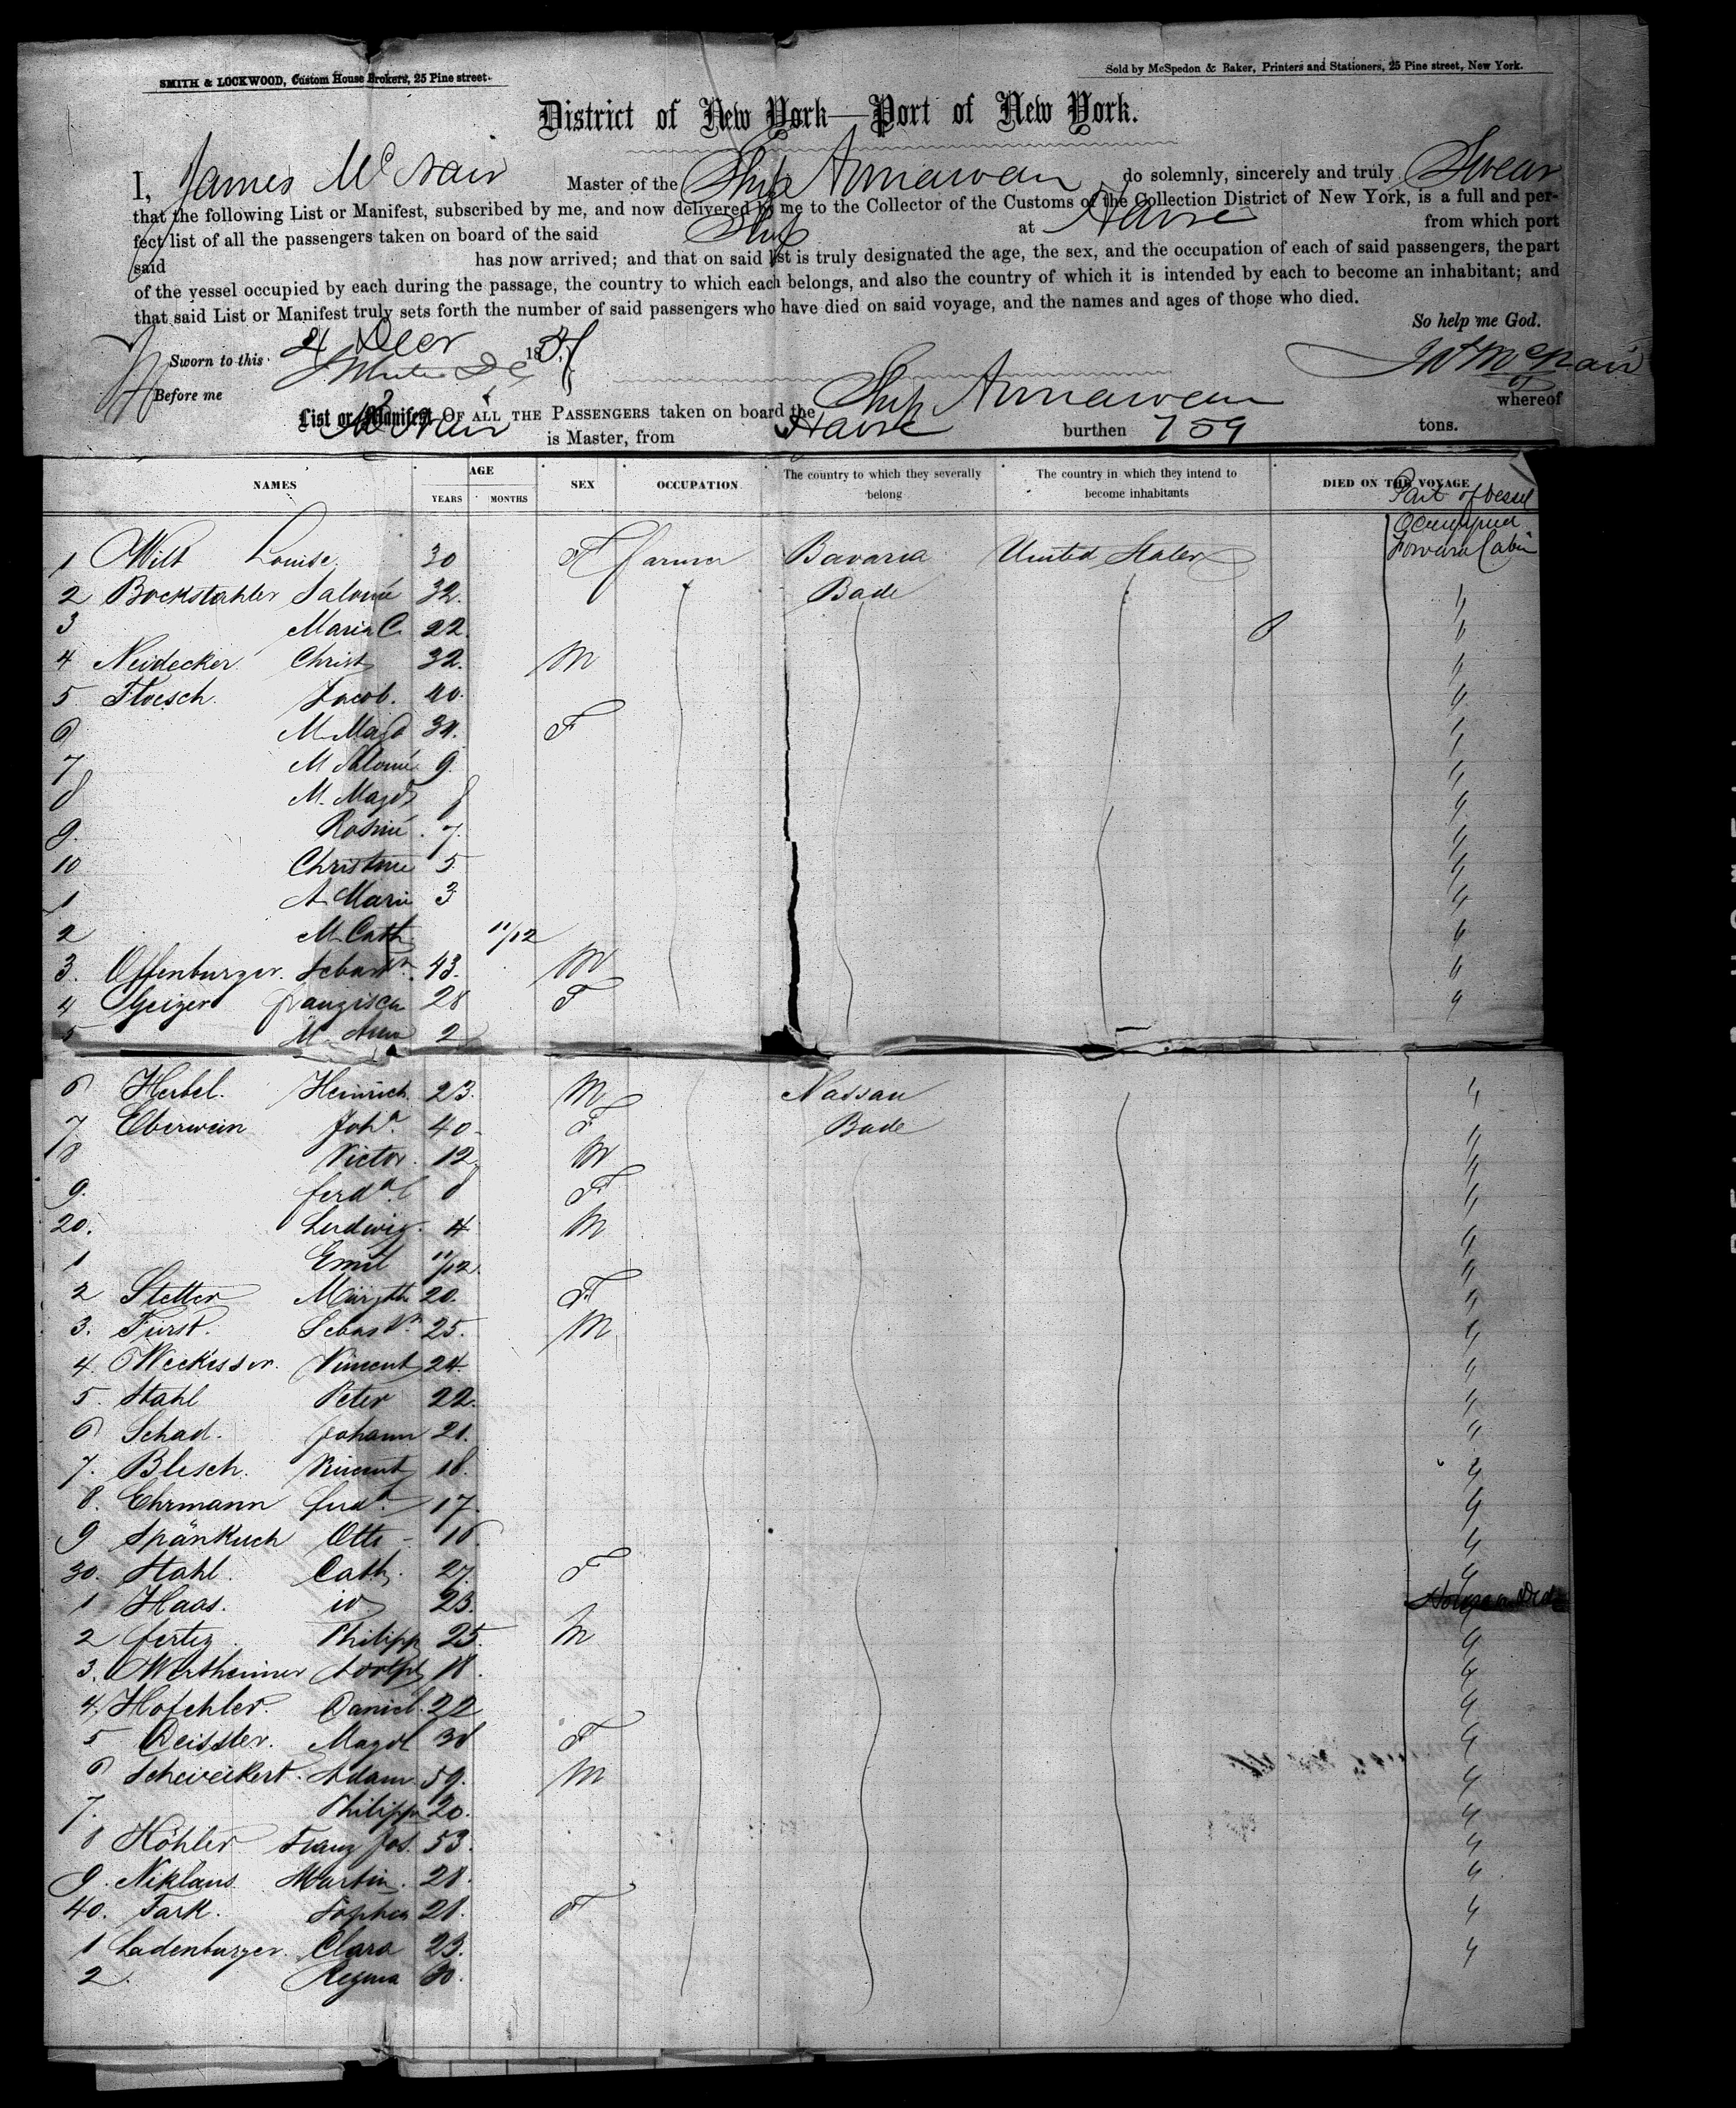 SMITH & LOCKWOOD, Custom House Brokers, 25 Pine street.
Sold by McSpedon & Baker, Printers and Stationers, 25 Pine street, New York.
District of New York—Port of New York.
I, James McNair Master of the Ship Annawan do solemnly, sincerely and truly Swear
that the following List or Manifest, subscribed by me, and now delivered by me to the Collector of the Customs of the Collection District of New York, is a full and per-
fect list of all the passengers taken on board of the said Ship at Havre from which port
said has now arrived; and that on said list is truly designated the age, the sex, and the occupation of each of said passengers, the part
of the vessel occupied by each during the passage, the country to which each belongs, and also the country of which it is intended by each to become an inhabitant; and
that said List or Manifest truly sets forth the number of said passengers who have died on said voyage, and the names and ages of those who died.
So help me God.
Sworn to this 4 Decr 18
Before me
Jas McNair
List or Manifest OF ALL THE PASSENGERS taken on board the Ship Annawan whereof
McNair is Master, from Havre burthen 759 tons.
NAMES AGE SEX OCCUPATION The country to which they severally The country in which they intend to DIED ON THE VOYAGE
YEARS MONTHS belong become inhabitants
Part of vessel
Occupied
1 Wilt Louise 30 F farmer Bavaria United States Forward Cabin
2 Bockstahler Salomé 32. Bade "
3 Maria C. 22. "
4 Neidecker Christ 32. M "
5 Floesch Jacob. 40. "
6 M. Magd 34. F "
7 M Salomé 9. "
8 M. Magd 8 "
9. Rosine. 7. "
10 Christine 5 "
1 A Marie 3 "
2 M. Cath 11/12 "
3. Offenburger. Sebastn. 43. M "
4 Geizer Franzisca 28 F "
5 M. Anna 2
6 Herbel. Heinrich 23. M Nassau "
7 Eberwein Joha. 40. F Bade "
8 Victor. 12 M "
9. ferd 8 F "
20. Ludwig. 4 M "
1 Emil 11/12. "
2 Stetter Margth 20. F "
3. Fürst. Sebastn 25. M "
4. Weckesser. Vincent 24. "
5. Stahl Peter 22. "
6 Schad. Johann 21. "
7. Blesch. Vincent 18. "
8. Ehrmann ferd. 17. "
9 Spänkuch Otto 16. "
30. Stahl. Cath. 27. F "
1 Haas. id 23.
2 fertig Philipp 25. M "
3. Wertheimer Adolph 18. "
4. Daniel. 22 "
5 Deissler. Magdl 38 F "
6 Scheweikert. Adam. 59. M "
7. Philipp 20. "
8 Köhler Franz Jos. 53. "
9. Niklaus Martin. 28. "
40. Fark. Sophia 21. F "
1 Ladenburger. Clara 23. "
2. Regina 30.